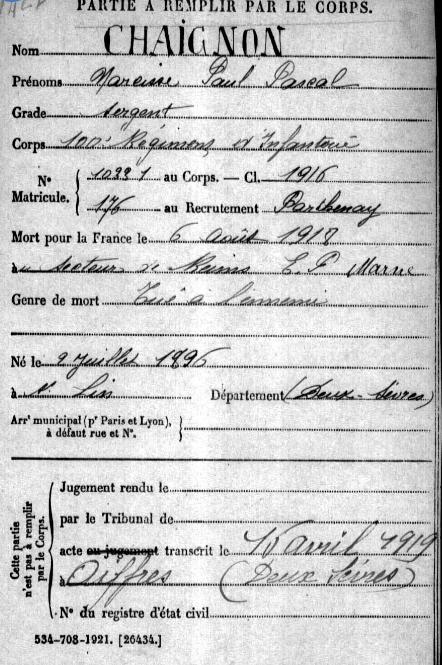 PARTIE À REMPLIR PAR LE CORPS.
Nom CHAIGNON
Prénoms Narcisse Paul Pascal
Grade Sergent
Corps 100e Régiment d'Infanterie
N° Matricule. { 10221 au Corps. — Cl. 1916
176 au Recrutement Parthenay
Mort pour la France le 6 août 1918
à secteur de Reims E. P Marne
Genre de mort Tué à l'ennemi
Né le 2 juillet 1896
à St Lin Département (Deux-Sèvres)
Arrt municipal (pr Paris et Lyon), à défaut rue et N°. }
Cette partie n'est pas à remplir par le Corps.
Jugement rendu le
par le Tribunal de
acte ou jugement transcrit le avril 1919
à Aiffres (Deux Sèvres)
N° du registre d'état civil
534-708-1921. [26434.]